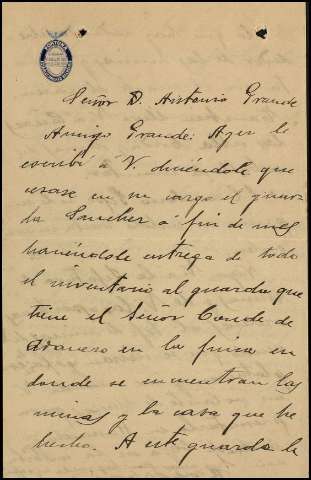 Señor D. Antonio Grande
Amigo Grande: Ayer le
escribí á V. diciéndole que
cesase en su cargo el guar-
da Sanchez á fin de mes
haciéndole entrega de todo
el inventario al guarda que
tiene el Señor Conde de
Adanero en la finca en
donde se encuentran las
minas y la casa que he
hecho. A este guarda le